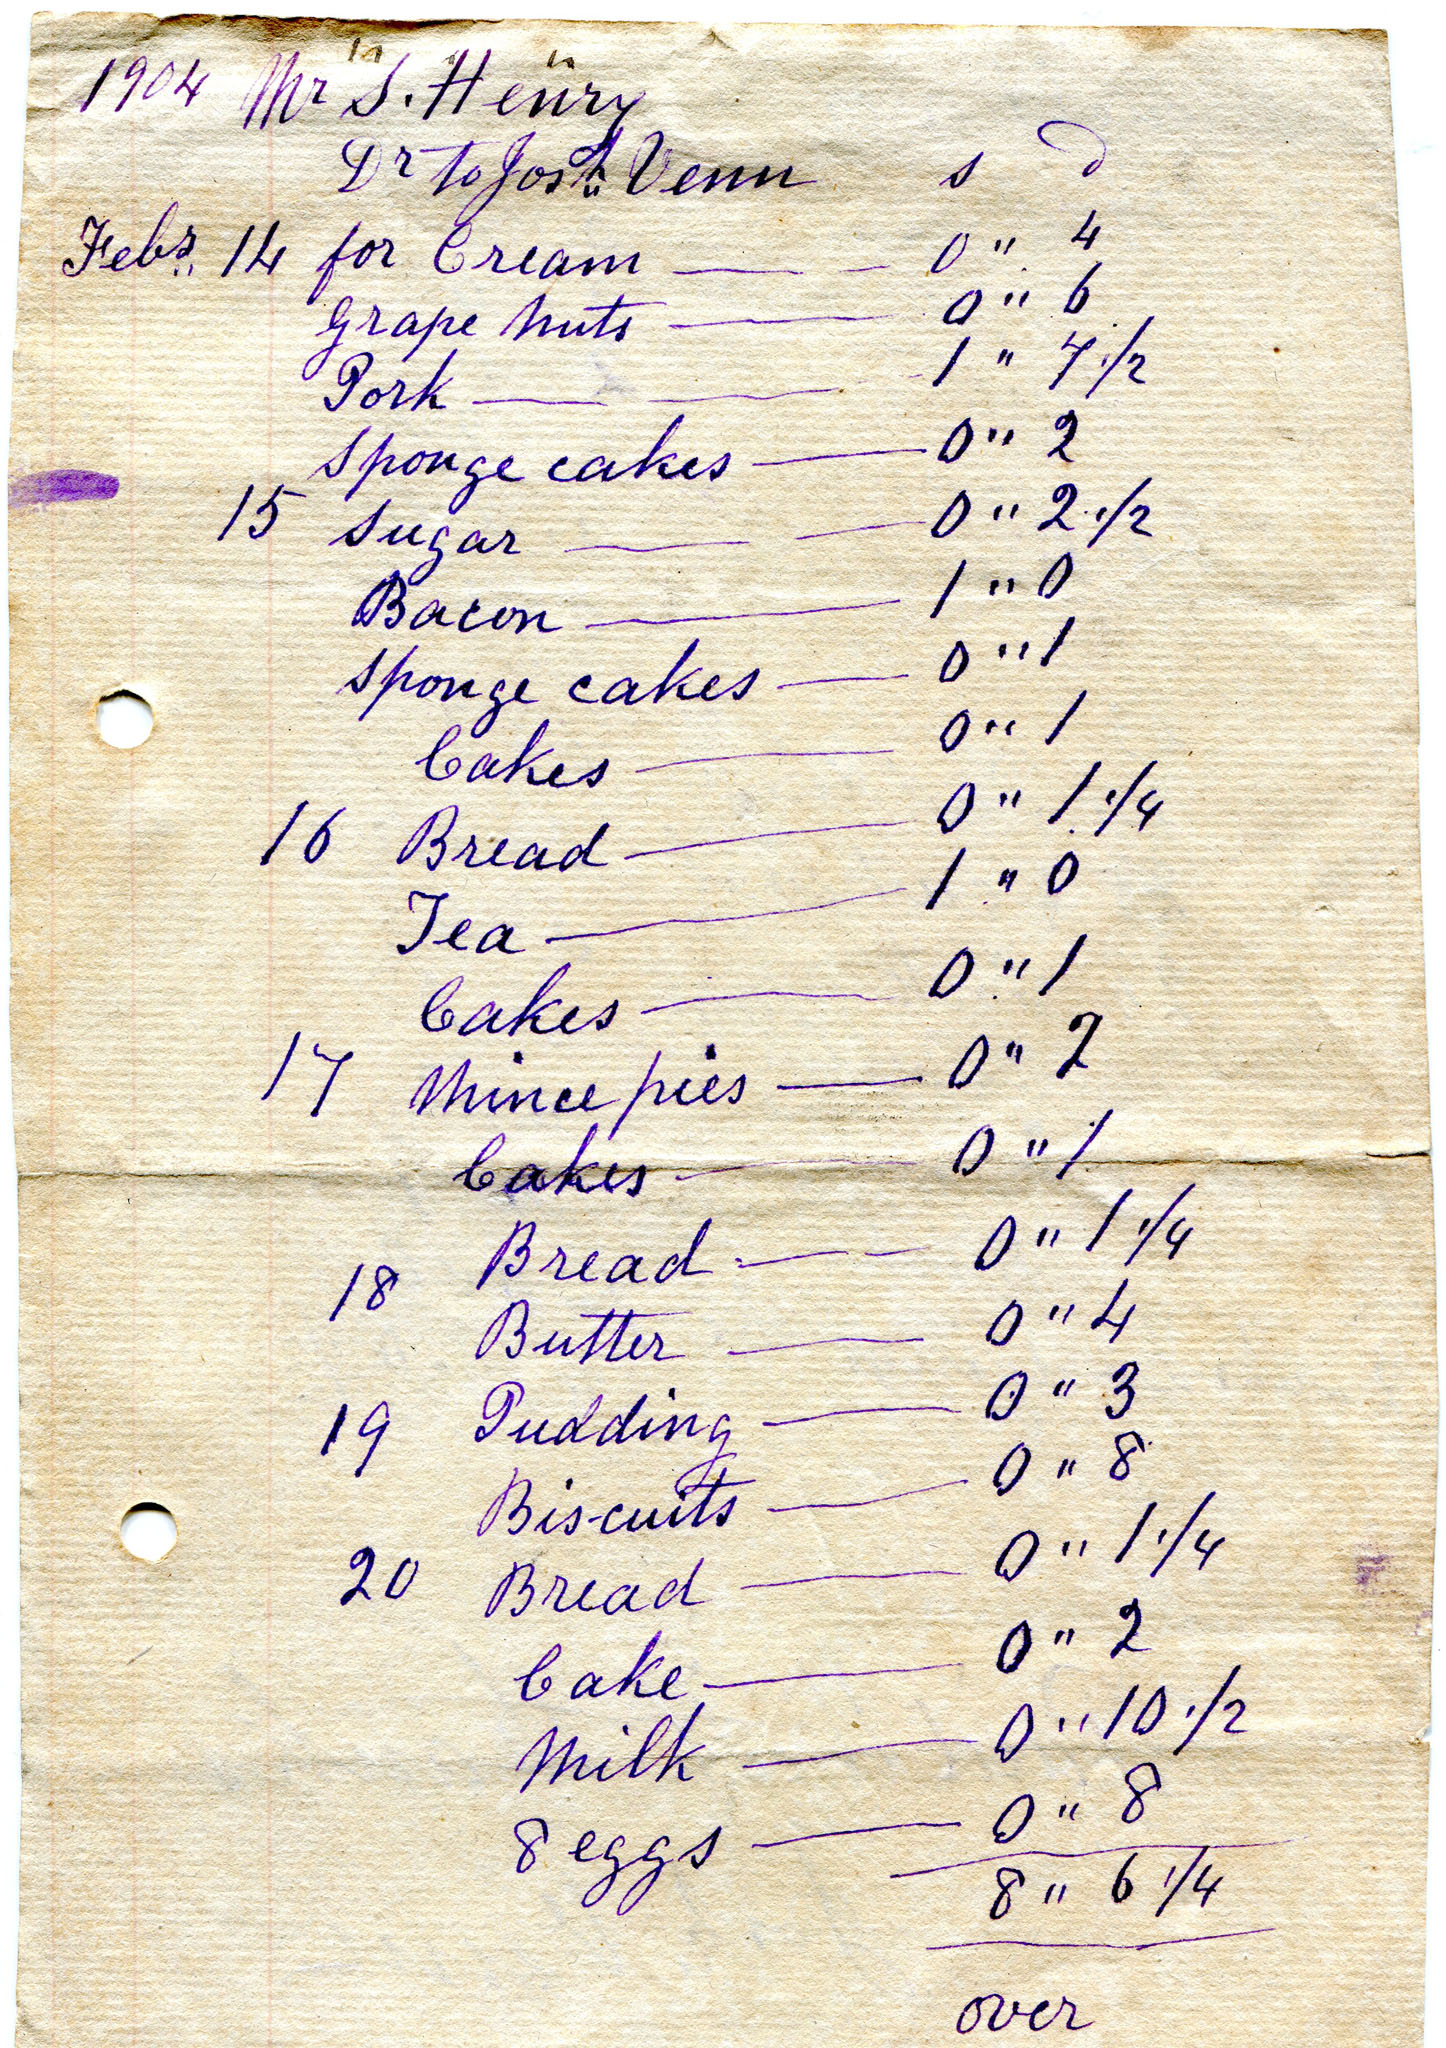 1904 Mr S. Henry
Dr to Josh Venn s d
Feby 14 for Cream 0 " 4
Grape nuts 0 " 6
Pork 1 " 7 1/2
Sponge cakes 0 " 2
15 Sugar 0 " 2 1/2
Bacon 1 " 0
Sponge cakes 0 " 1
Cakes 0 " 1
16 Bread 0 " 1 1/4
Tea 1 " 0
Cakes 0 " 1
17 Mince pies 0 " 2
Cakes 0 " 1
Bread 0 " 1 1/4
18 Butter 0 " 4
19 Pudding 0 " 3
Biscuits 0 " 8
20 Bread 0 " 1 1/4
Cake 0 " 2
Milk 0 " 10 1/2
8 eggs 0 " 8
8 " 6 1/4
over